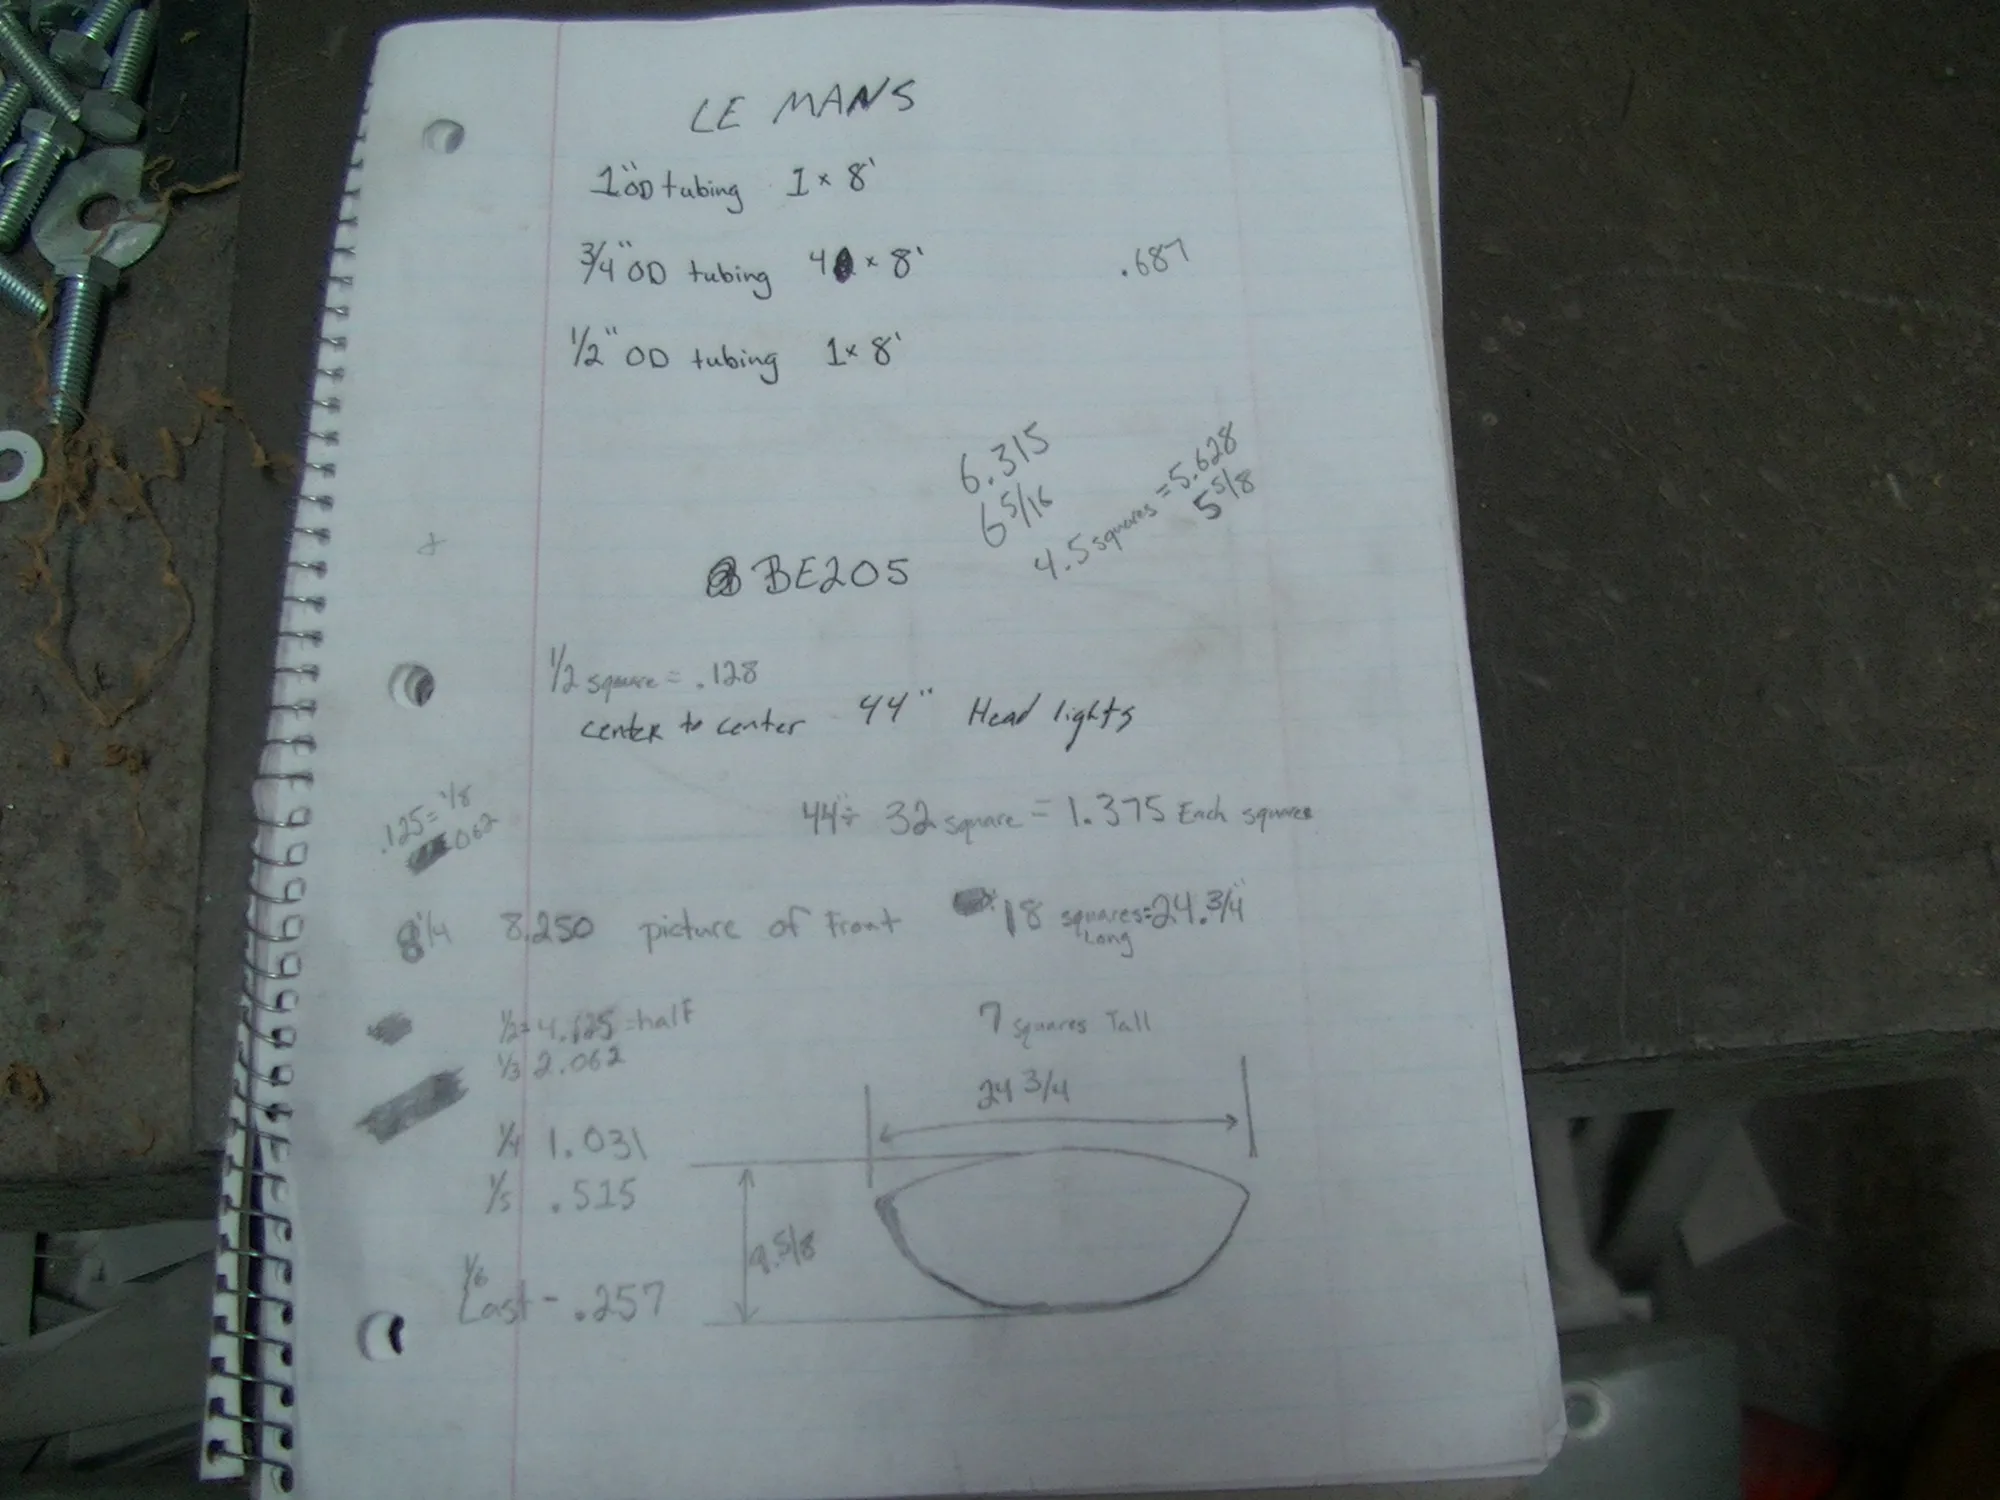 LE MANS
1" OD tubing 1 x 8'
3/4" OD tubing 4 x 8' .687
1/2" OD tubing 1 x 8'
6.315
6 5/16
4.5 squares = 5.628
5 5/8
BE205
1/2 square = .128
center to center 44" Head lights
.125 = 1/8
.062
44" ÷ 32 square = 1.375 Each square
8 1/4 8.250 picture of Front 18 squares = 24.3/4"
Long
1/2 = 4.125 = half 7 squares Tall
1/3 2.062
24 3/4
1/4 1.031
1/5 .515
9.5/8
1/6
Last - .257